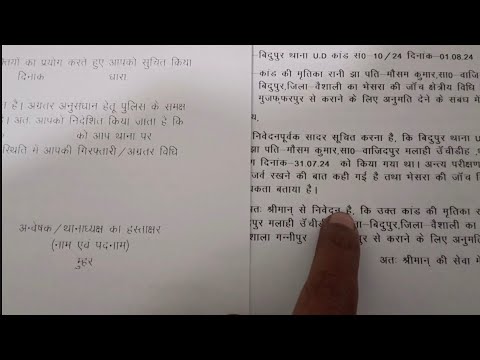 क्तियों का प्रयोग करते हुए आपको सुचित किया
दिनांक धारा
त है। अग्रतर अनुसंधान हेतू पुलिस के समक्ष
है। अतः आपको निर्देशित किया जाता है कि
को आप थाना पर
स्थिति मे आपकी गिरफ्तारी/अग्रतर विधि
अन्वेषक/थानाध्यक्ष का हस्ताक्षर
(नाम एवं पदनाम)
मुहर
बिदुपुर थाना U.D कांड स0 10/24 दिनांक-01.08.24
कांड की मृतिका रानी झा पति-मौसम कुमार,सा0-वाजि
बिदुपुर,जिला-वैशाली का भेसरा की जाँच क्षेत्रीय विधि
मुजफ्फरपुर से कराने के लिए अनुमति देने के सबंध में
निवेदनपूर्वक सादर सूचित करना है, कि बिदुपुर थाना U
झा पति-मौसम कुमार,सा0-वाजिदपुर मलाही उँचीडीह ,था
ण दिनांक-31.07.24 को किया गया था। अन्त्य परीक्षण
जर्व रखने की बात कही गई है तथा भेसरा की जाँच वि
यकता बताया है।
अतः श्रीमान् से निवेदन है, कि उक्त कांड की मृतिका रा
पुर मलाही उँचीडीह ना-बिदुपुर,जिला-वैशाली का
शाला मन्नीपुर पुर से कराने के लिए अनुमति
अतः श्रीमान् की सेवा में